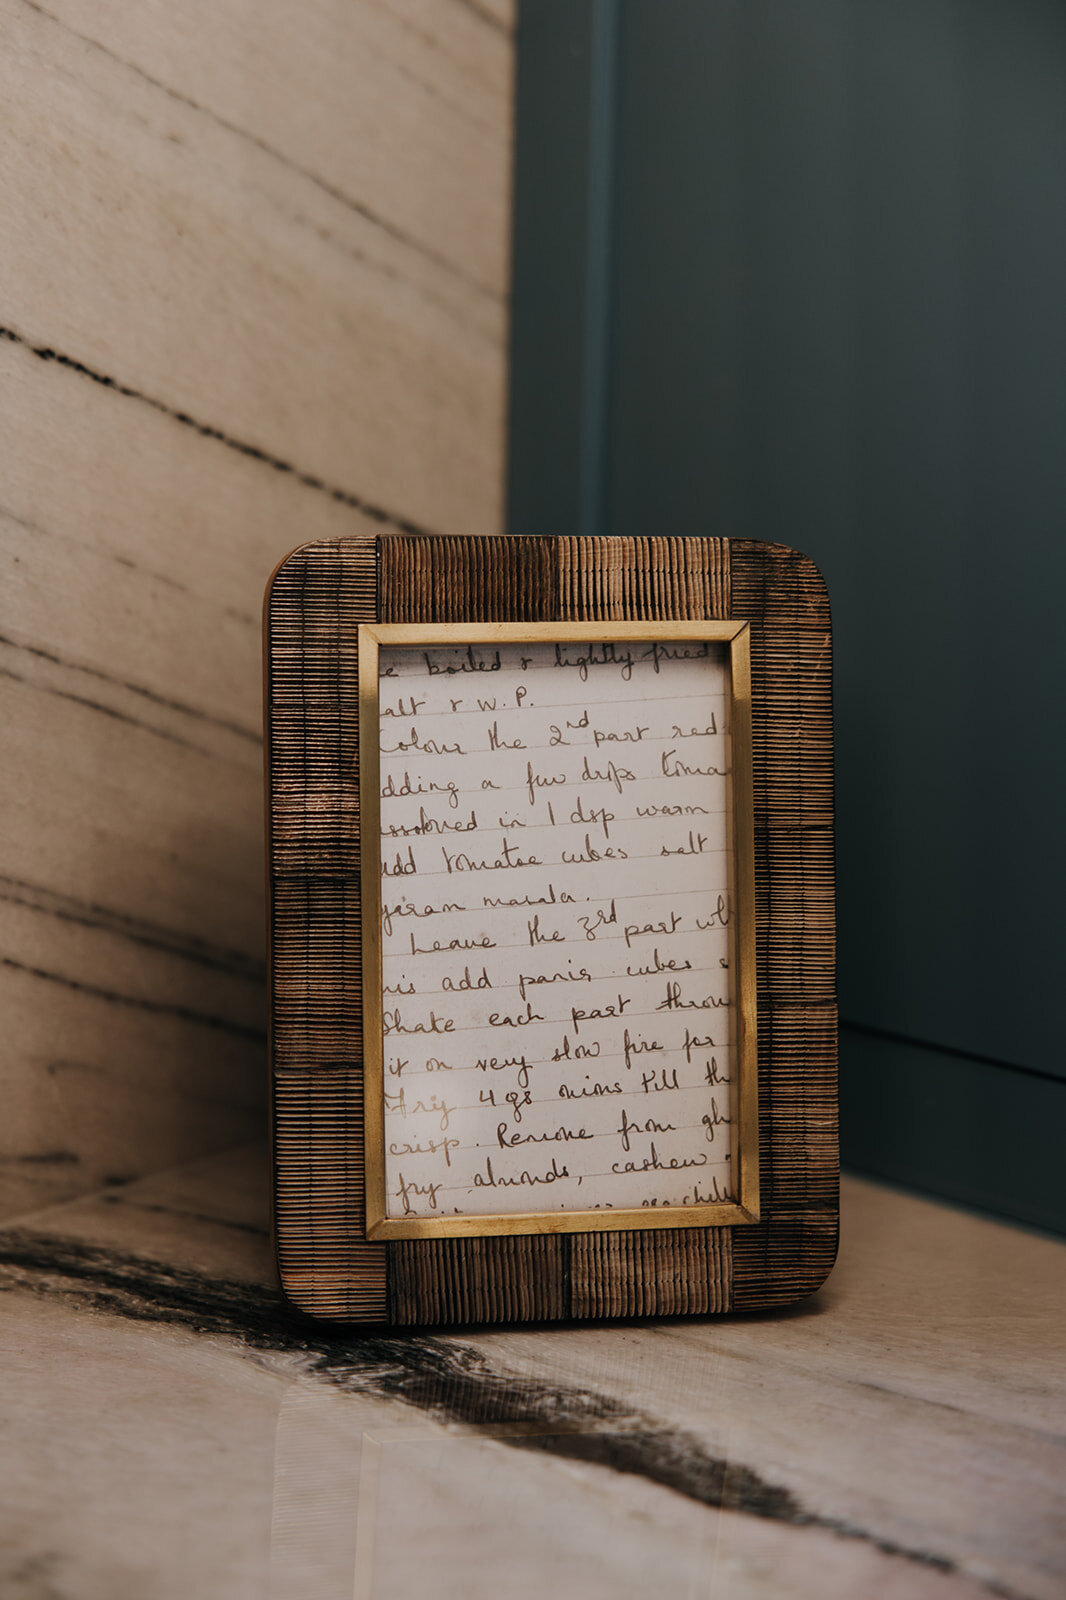 e boiled & lightly fried
alt & W.P.
Colour the 2nd part red
dding a few drips toma
issolved in 1 dsp warm
add tomatoe cubes salt
garam masala.
Leave the 3rd part wh
his add panir cubes
Shake each part throu
it on very slow fire for
Fry 4 gs mins till th
crisp. Remove from gh
fry almonds, cashew
chill